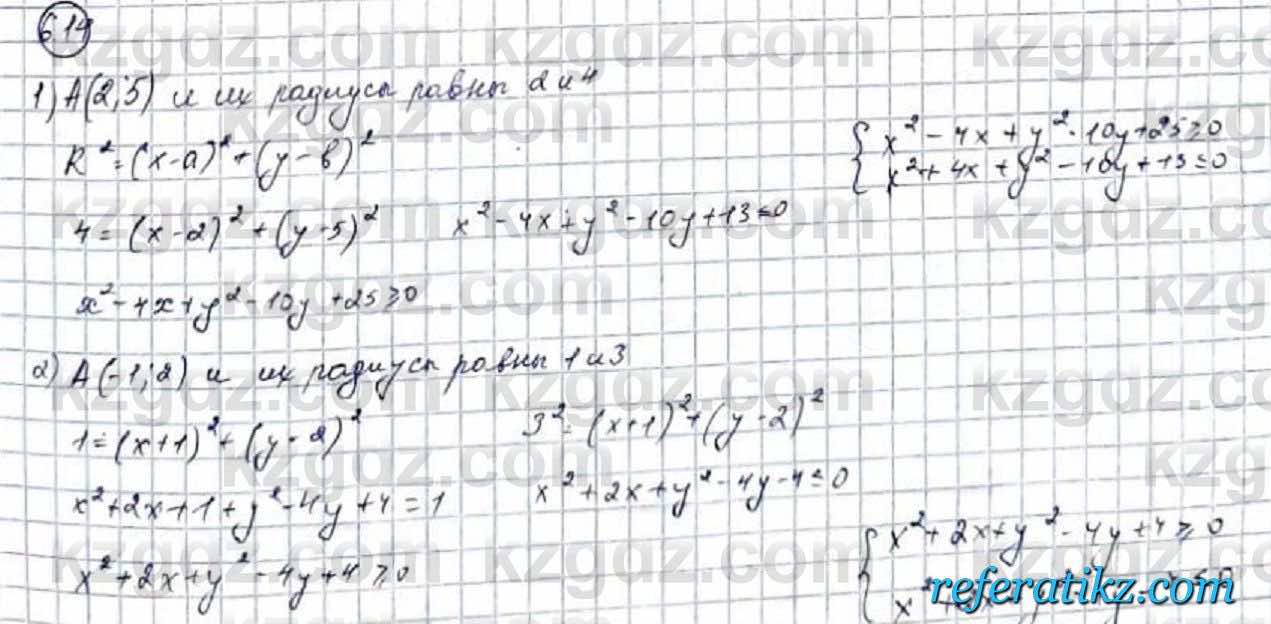 6.14
1) A(2;5) и их радиусы равны 2 и 4
R² = (x-a)² + (y-b)²
4 = (x-2)² + (y-5)²
x² - 4x + y² - 10y + 13 ≤ 0
x² - 4x + y² - 10y + 25 ≥ 0
{ x² - 4x + y² - 10y + 25 ≥ 0
x² + 4x + y² - 10y + 13 ≤ 0
2) A(-1;2) и их радиусы равны 1 и 3
1 = (x+1)² + (y-2)²
x² + 2x + 1 + y² - 4y + 4 = 1
x² + 2x + y² - 4y + 4 ≥ 0
3² = (x+1)² + (y-2)²
x² + 2x + y² - 4y - 4 ≤ 0
{ x² + 2x + y² - 4y + 4 ≥ 0
x²
kzgdz.com
referatikz.com